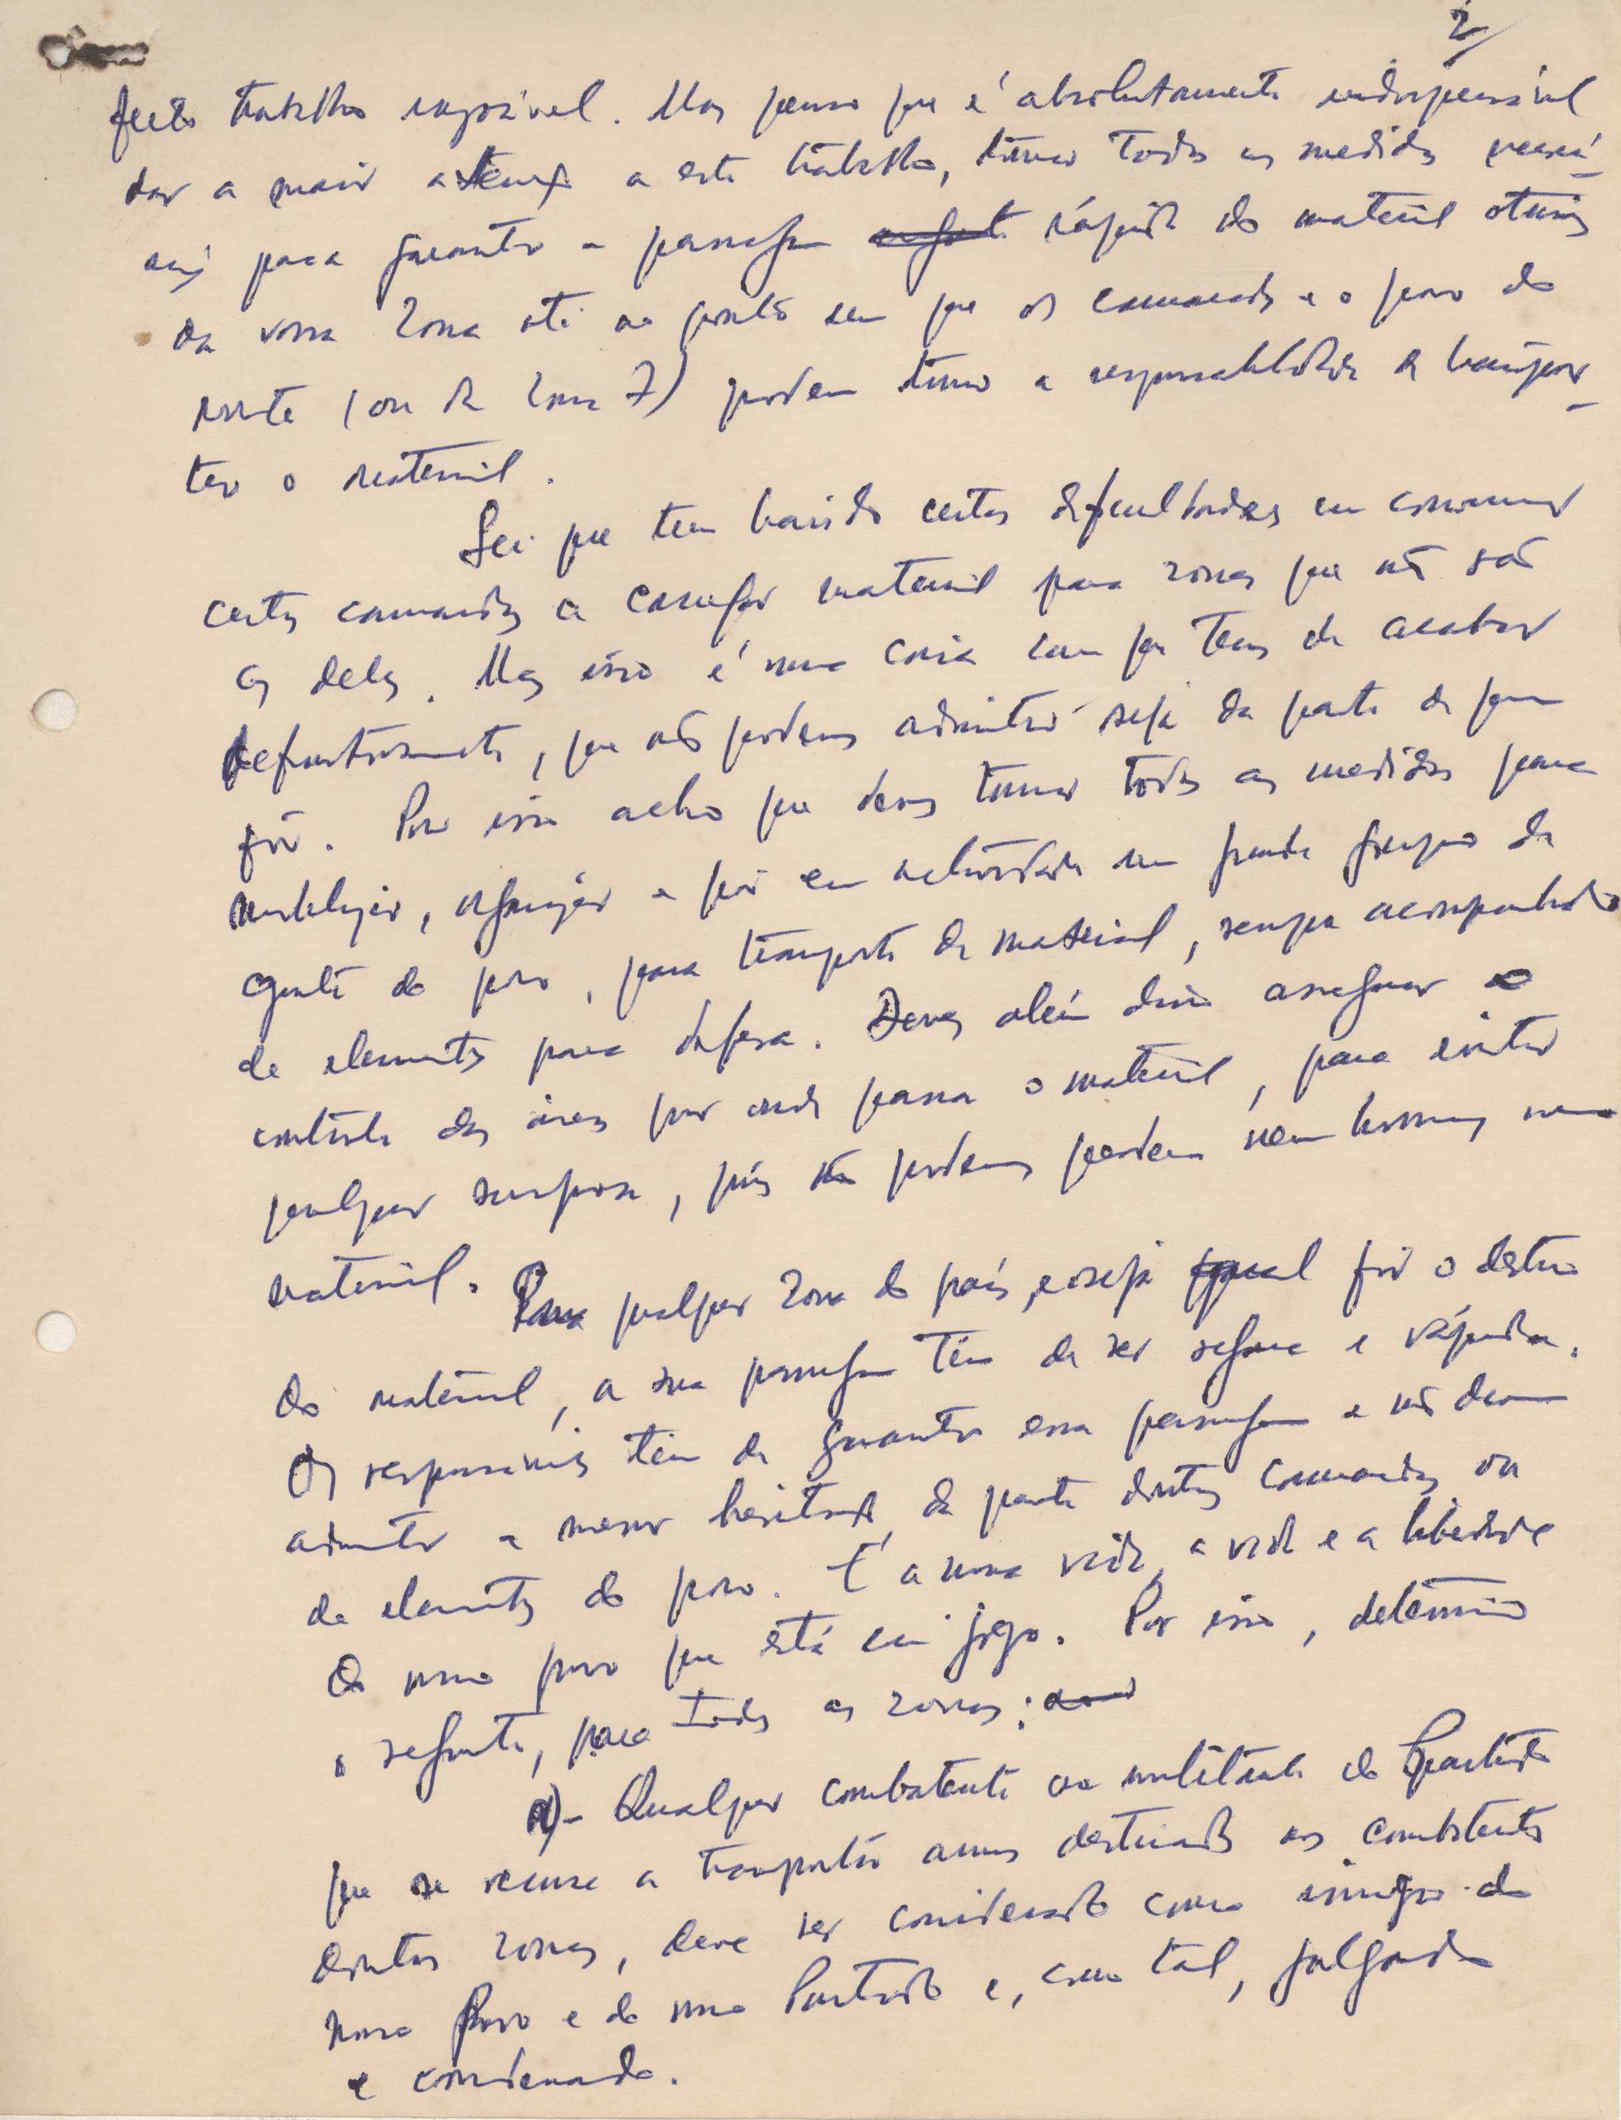 2
feito trabalho. Mas penso que é absolutamente indispensável
dar a maior atenção a este trabalho, tomar todas as medidas necessá-
rias para garantir a passagem rápida do material
da vossa zona até ao ponto em que os camaradas e o povo do
norte (ou da zona 7) podem tomar a responsabilidade de transpor-
tar o material.
Sei que tem havido certas dificuldades em convencer
certos camaradas a carregar material para zonas que não são
as deles. Mas isso é uma coisa com que temos de acabar
definitivamente, que não podemos admitir seja da parte de quem
fôr. Por isso acho que deves tomar todas as medidas para
mobilizar, organizar e pôr em actividade um grande grupo de
gente do povo, para transporte de material, sempre acompanhado
de elementos para defesa. Deves além disso assegurar o
controle das áreas por onde passa o material, para evitar
qualquer surpresa, pois não podemos perder nem homens nem
material. Para qualquer zona do país, e seja qual fôr o destino
do material, a sua passagem tem de ser segura e rápida.
Os responsáveis têm de garantir essa passagem e não devem
admitir a menor hesitação da parte doutros camaradas ou
de elementos do povo. É a nossa vida, a vida e a liberdade
do nosso povo que está em jogo. Por isso, determino
o seguinte, para todas as zonas:
a)- Qualquer combatente ou militante do Partido
que se recuse a transportar armas destinadas aos combatentes
doutras zonas, deve ser considerado como inimigo do
nosso Povo e do nosso Partido e, como tal, julgado
e condenado.